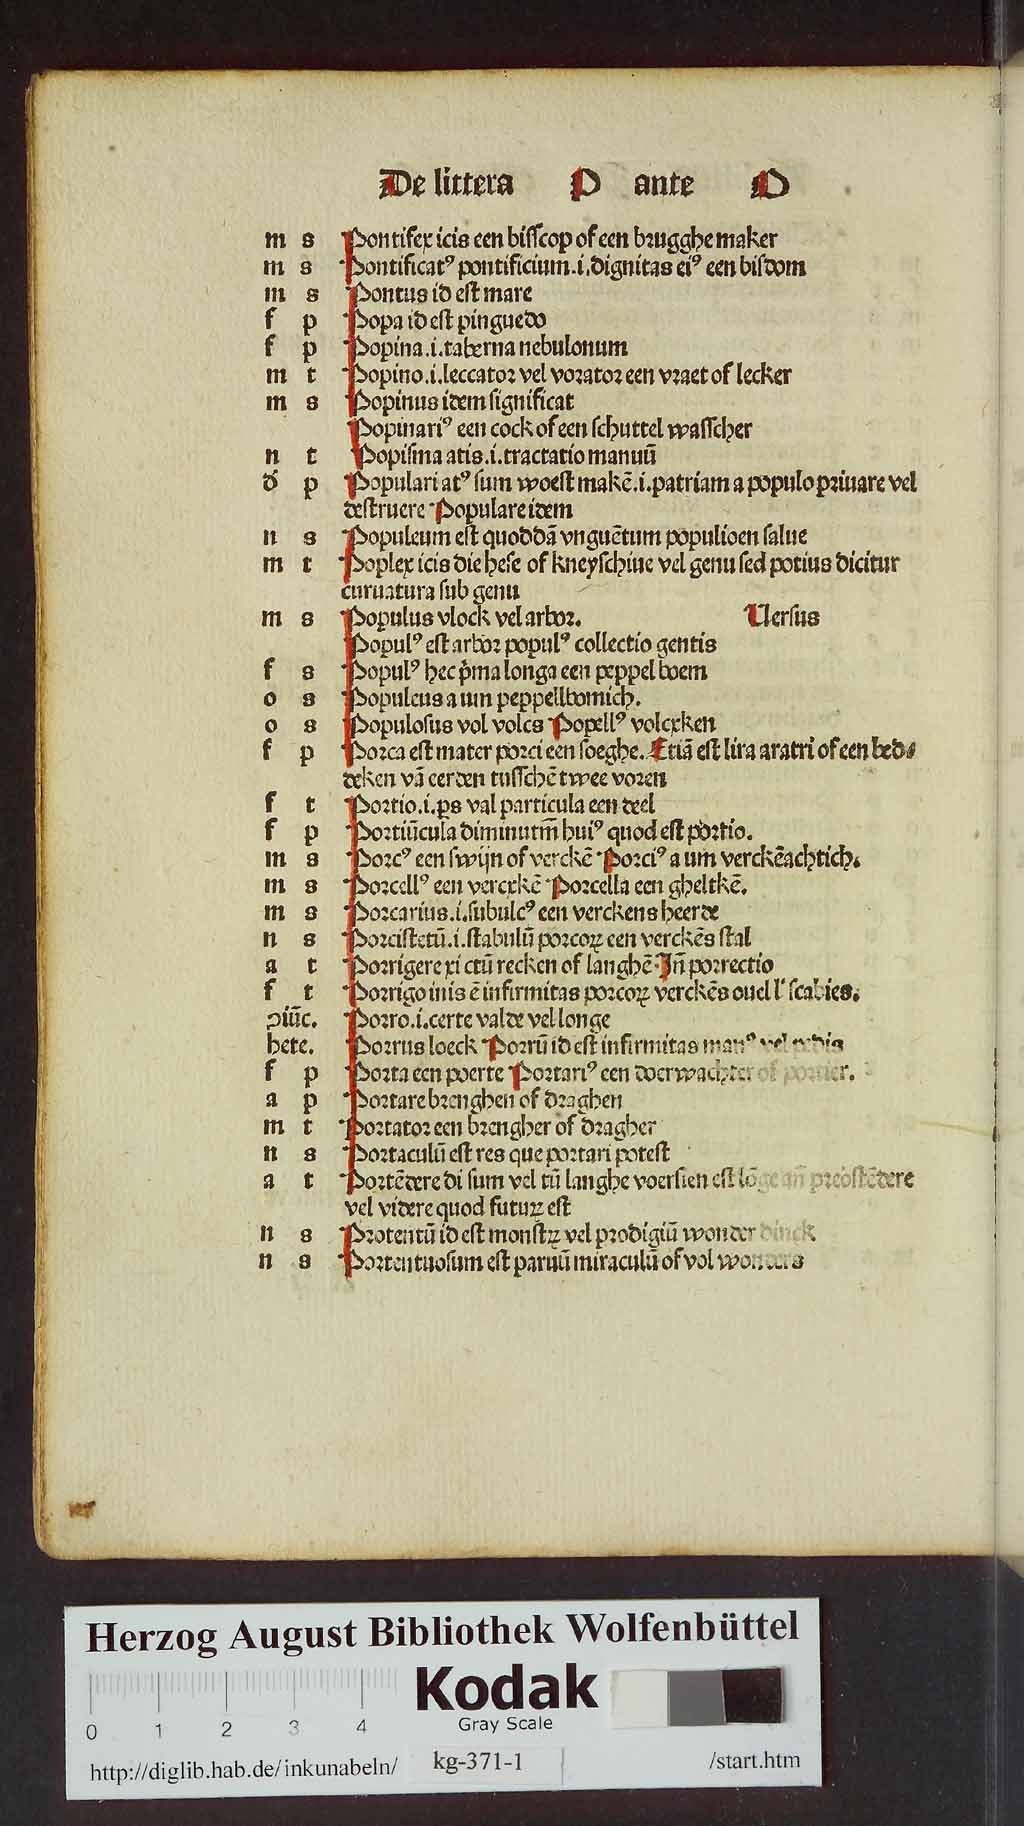 De littera P ante O
m s Pontifex icis een bisscop of een brugghe maker
m s Pontificatꝰ pontificium .i. dignitas eiꝰ een bisdom
m s Pontus id est mare
f p Popa id est pinguedo
f p Popina .i. taberna nebulonum
m t Popino .i. leccator vel vorator een vraet of lecker
m s Popinus idem significat
Popinariꝰ een cock of een schuttel wasscher
n t Popisma atis .i. tractatio manuū
d' p Populari atꝰ sum woest makē .i. patriam a populo priuare vel
destruere Populare idem
n s Populeum est quoddā vnguētum populioen salue
m t Poplex icis die hese of kneyschiue vel genu sed potius dicitur
curuatura sub genu
m s Populus vlock vel arbor. Uersus
Populꝰ est arbor populꝰ collectio gentis
f s Populꝰ hec p̄ma longa een peppel boem
o s Populeus a um peppellbomich.
o s Populosus vol volcs Popellꝰ volcxken
f p Porca est mater porci een soeghe. Etiā est lira aratri of een bed⸗
deken vā cerden tusschē twee voren
f t Portio .i. ꝑs val particula een deel
f p Portiūcula diminutm̄ huiꝰ quod est portio.
m s Porcꝰ een swijn of verckē Porciꝰ a um verckēachtich.
m s Porcellꝰ een vercxkē Porcella een gheltkē.
m s Porcarius .i. subulcꝰ een verckens heerde
n s Porcistetū .i. stabulū porcoꝝ een verckēs stal
a t Porrigere xi ctū recken of langhē. Jn̄ porrectio
f t Porrigo inis ē infirmitas porcoꝝ verckēs ouel l' scabies.
ↄiūc. Porro .i. certe valde vel longe
hete. Porrus loeck Porrū id est infirmitas manꝰ vel pedis
f p Porta een poerte Portariꝰ een doerwachter of portier.
a p Portare brenghen of draghen
m t Portator een brengher of dragher
n s Portaculū est res que portari potest
a t Portēdere di sum vel tū langhe voersien est lōge an̄ preostēdere
vel videre quod futuꝝ est
n s Protentū id est monstꝝ vel prodigiū wonder dinck
n s Portentuosum est paruū miraculū of vol wonders
Herzog August Bibliothek Wolfenbüttel
Kodak
Gray Scale
0 1 2 3 4
http://diglib.hab.de/inkunabeln/ kg-371-1 /start.htm